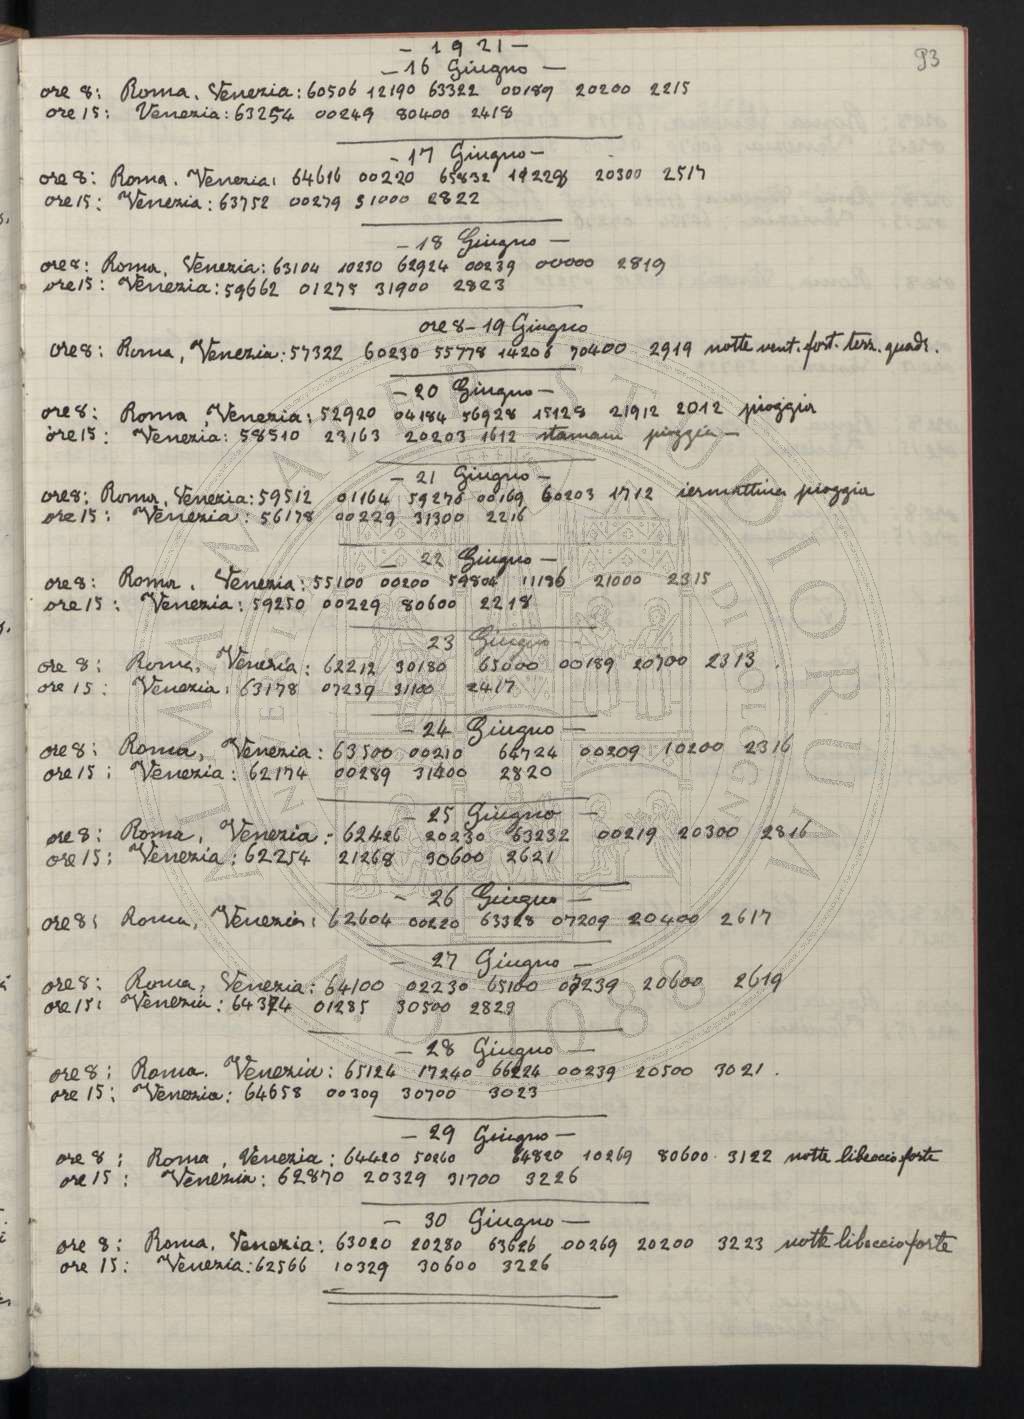 93
- 1921 -
- 16 Giugno -
ore 8: Roma. Venezia: 60506 12190 63322 00189 20200 2215
ore 15: Venezia: 63254 00249 80400 2418
- 17 Giugno -
ore 8: Roma. Venezia: 64616 00220 65832 11228 20300 2517
ore 15: Venezia: 63752 00279 31000 2822
- 18 Giugno -
ore 8: Roma, Venezia: 63104 10230 62924 00239 00000 2819
ore 15: Venezia: 59662 01275 31900 2823
ore 8 - 19 Giugno
ore 8: Roma, Venezia: 57322 60230 55778 14206 70400 2919 notte vent. fort. terz. quadr.
- 20 Giugno -
ore 8: Roma, Venezia: 52920 04184 56928 15128 21912 2012 pioggia
ore 15: Venezia: 58510 23163 20203 1612 stamani pioggia -
- 21 Giugno -
ore 8: Roma, Venezia: 59512 01164 59276 00169 60203 1712 iermattina pioggia
ore 15: Venezia: 56178 00229 31300 2216
- 22 Giugno -
ore 8: Roma. Venezia: 55100 00200 59804 11196 21000 2315
ore 15: Venezia: 59250 00229 80600 2218
23 Giugno -
ore 8: Roma, Venezia: 62212 30180 65000 00189 20700 2313.
ore 15: Venezia: 63178 07239 31100 2417
- 24 Giugno -
ore 8: Roma, Venezia: 63500 00210 64724 00209 10200 2316
ore 15: Venezia: 62174 00289 31400 2820
- 25 Giugno -
ore 8: Roma, Venezia: 62426 20230 63232 00219 20300 2816
ore 15: Venezia: 62254 21268 30600 2621
- 26 Giugno -
ore 8: Roma, Venezia: 62604 00220 63328 07209 20400 2617
- 27 Giugno -
ore 8: Roma, Venezia: 64100 02230 65100 07239 20600 2619
ore 15: Venezia: 64374 01285 30500 2829
- 28 Giugno -
ore 8: Roma. Venezia: 65124 17240 66224 00239 20500 3021.
ore 15: Venezia: 64658 00309 30700 3023
- 29 Giugno -
ore 8: Roma, Venezia: 64420 50260 64820 10269 80600 3122 notte libeccio forte
ore 15: Venezia: 62870 20329 31700 3226
- 30 Giugno -
ore 8: Roma. Venezia: 63020 20280 63626 00269 20200 3223 notte libeccio forte
ore 15: Venezia: 62566 10329 30600 3226
ALMA MATER STUDIORUM
A.D. 1088